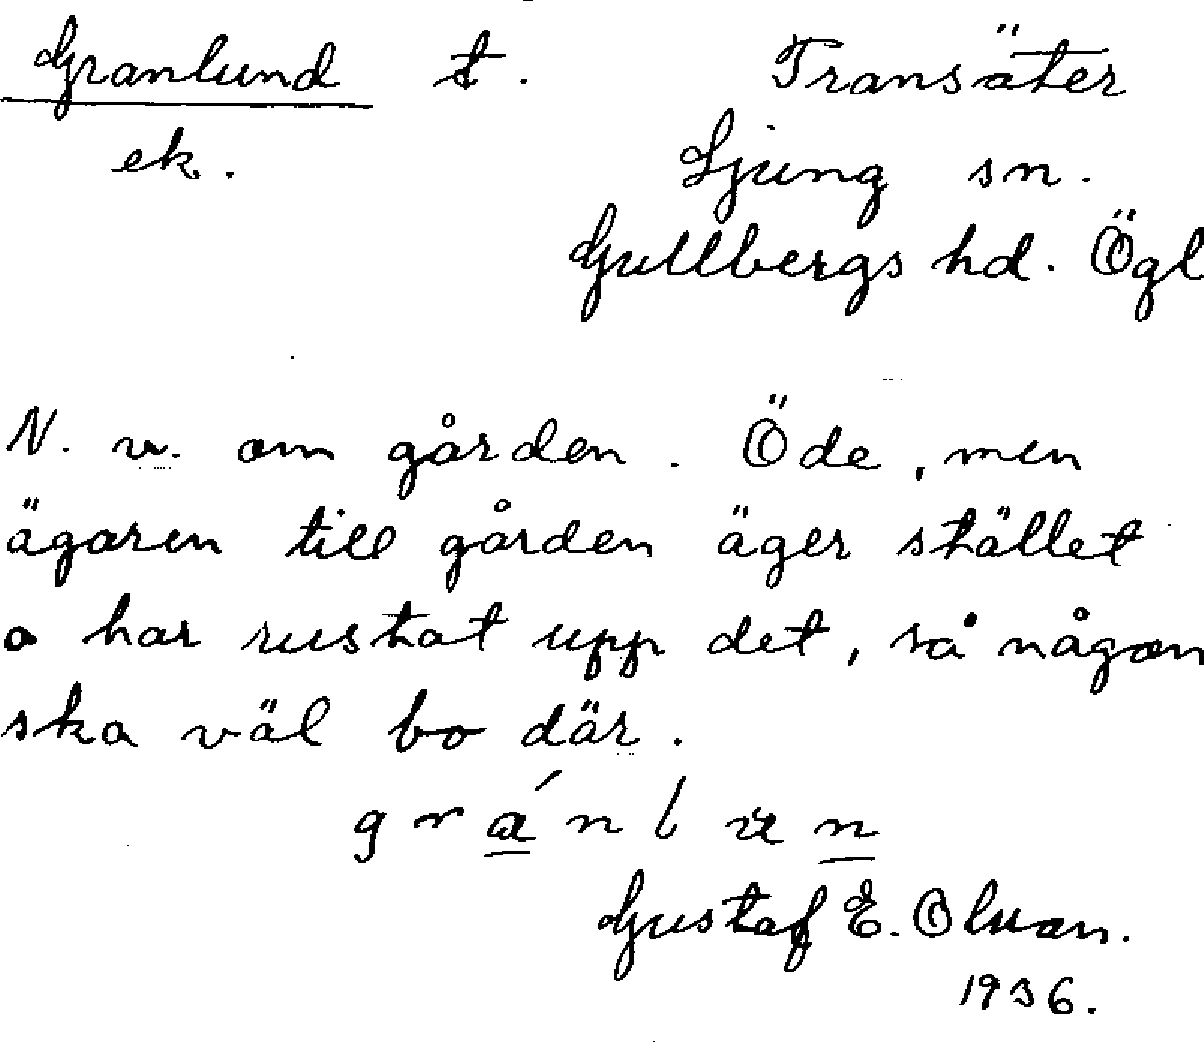 Granlund t. Transäter
ek. Ljung sn.
Gullbergs hd. Ögl
N. v. om gården. Öde, men
ägaren till gården äger stället
o har rustat upp det, så någon
ska väl bo där.
Gustaf E. Olson.
1936.